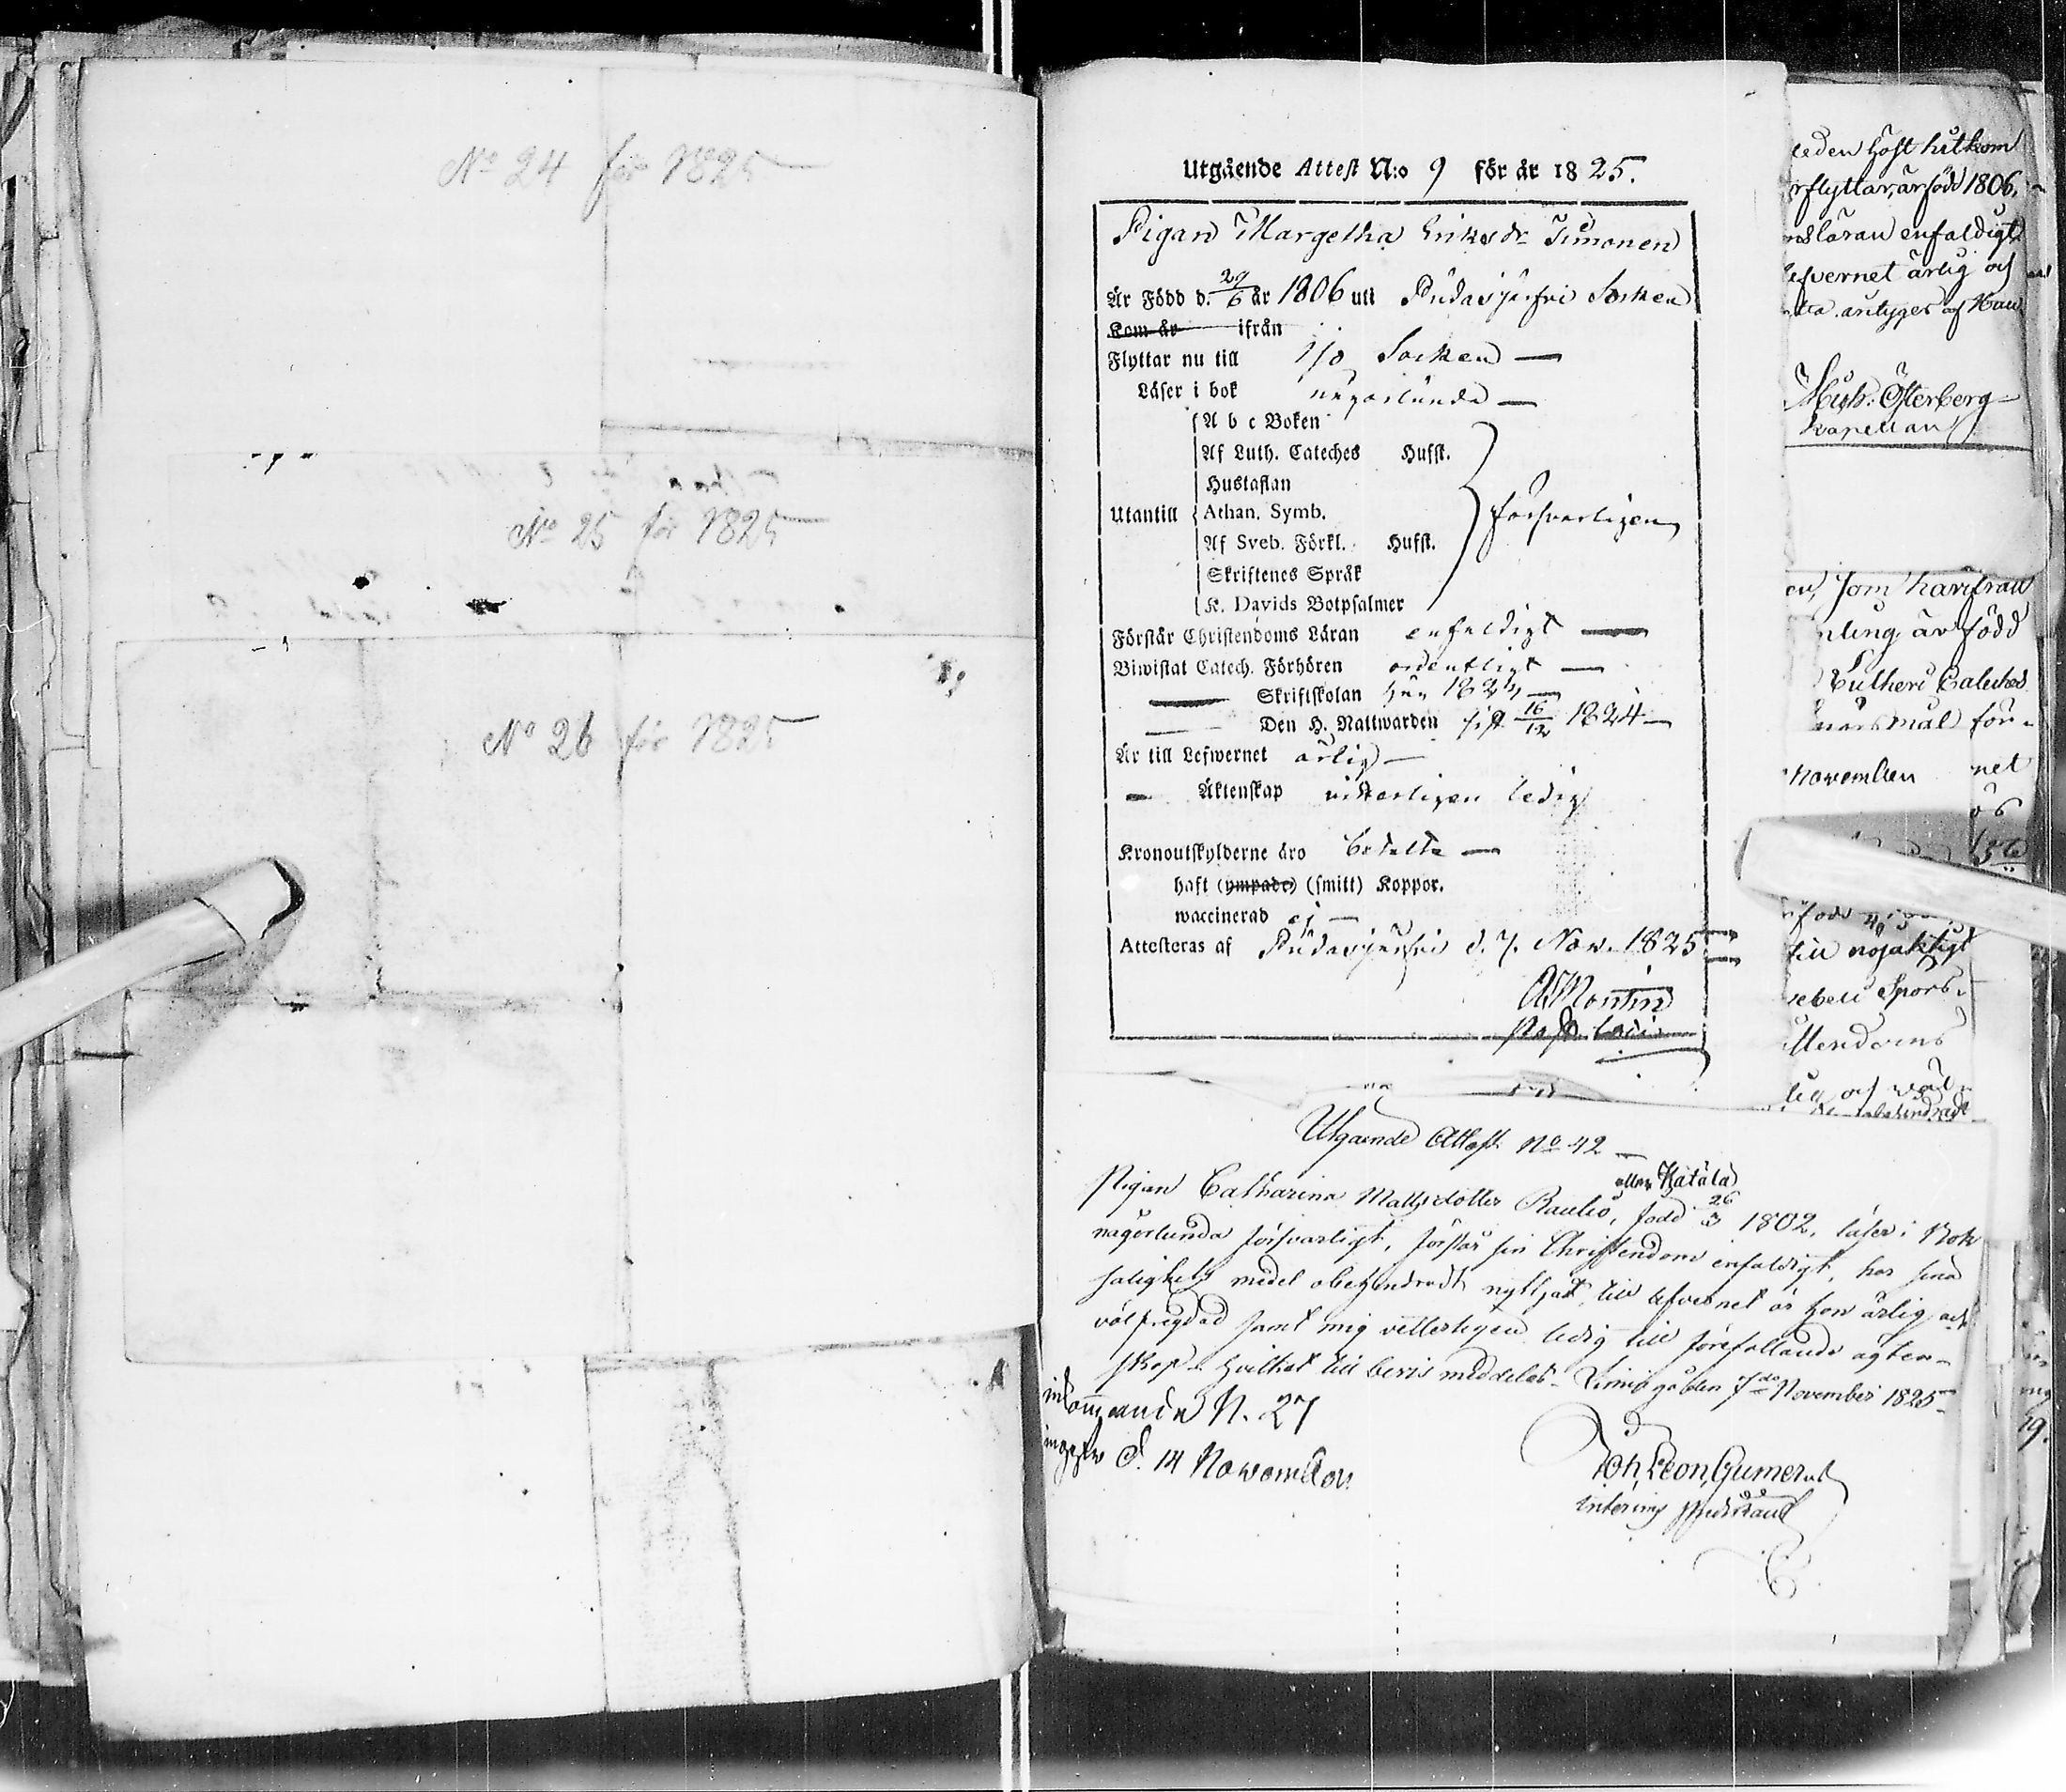 No 24 för 1825
No 25 för 1825
No 26 för 1825
Utgående Attest N:o 9 för år 1825.
Pigan Margetha Eriksdr Timonen
Är Född d. 29/6 år 1806 uti Pudasjerfvi Socken
Kom år ifrån
Flyttar nu till Ijo Socken —
Läser i bok någorlunda —
A b c Boken
Af Luth. Cateches Hufst.
Hustaflan
Utantill Athan. Symb. försvarligen
Af Sveb. Förkl. Hufst.
Skriftenes Språk
K. Davids Botpsalmer
Förstår Christendoms Läran enfaldigt —
Biwistat Catech. Förhören ordentligt —
— Skriftskolan 1824 —
— Den H. Nattwarden sist 16/12 1824 —
Är till Lefwernet ärlig —
— Äktenskap witterligen ledig
Kronoutskylderne äro betalta —
haft (ympade) (smitt) Koppor.
waccinerad ej —
Attesteras af Pudasjerfvi d. 7. Nov. 1825
A Montin
Past. loci
Utgaende Attest No 42 —
eller Hätälä
Pigan Catharina Mattsdotter Raulio, född 26/3 1802, läser i Bok
någorlunda försvarligt, förstår sin Christendom enfaldigt, har sina
salighets medel obehindradt nyttjat, till lefvernet är hon ärlig och
välfregdad samt mig vetterligen ledig till förefallande ägten-
skap. Hvilket till bevis meddelas. Limingå den 7de November 1825
inkommande N. 27
ingifw d. 14 November
Joh. Leon, Gumerus
interims
leden höst hitkom
rflyttar, är född 1806,
nsläran enfaldigt
lefvernet ärlig och
antyges af Hau
Mich: Österberg
kapellan
en, som härifrån
nling, är född
Lutheri Catches
November
net
till nöjaktigt
Spors-
och väl-